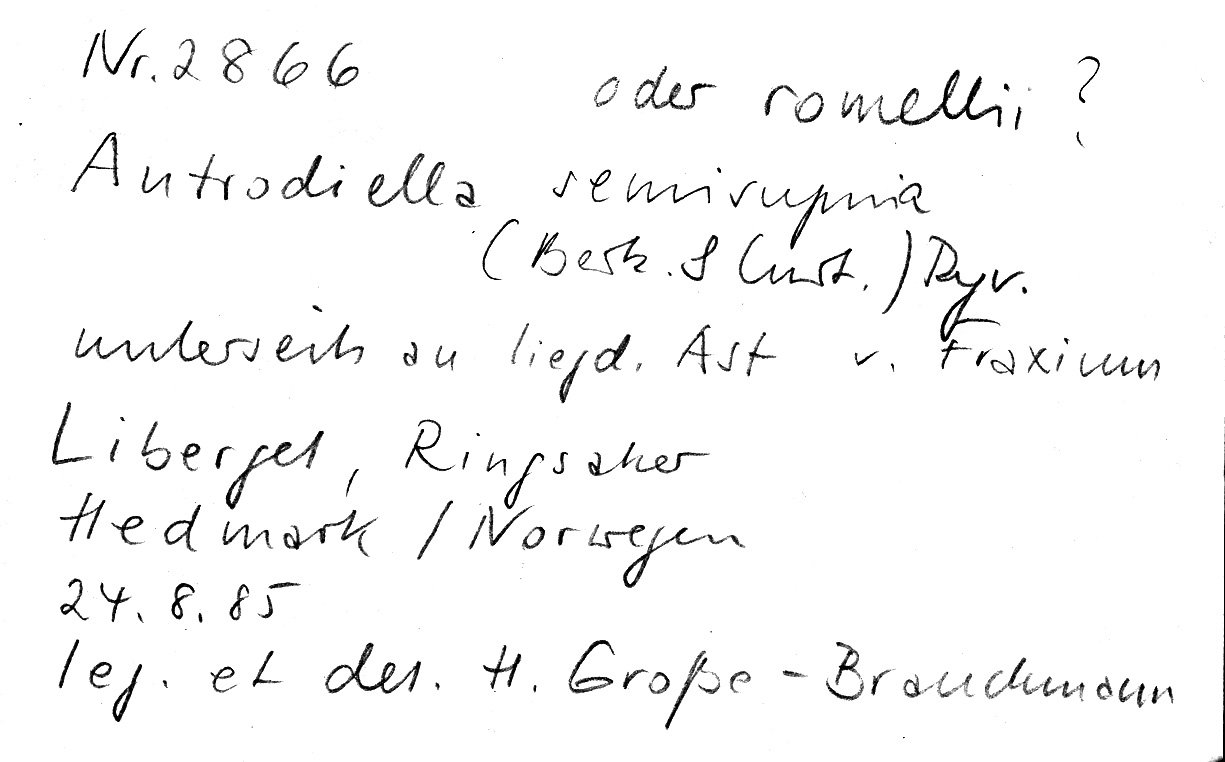 Nr. 2866
oder romellii ?
Antrodiella semisupina
(Berk. & Curt.) Ryv.
unterseits an liegd. Ast v. Fraxinus
Liberget, Ringsaker
Hedmark / Norwegen
24. 8. 85
leg. et det. H. Große-Brauckmann